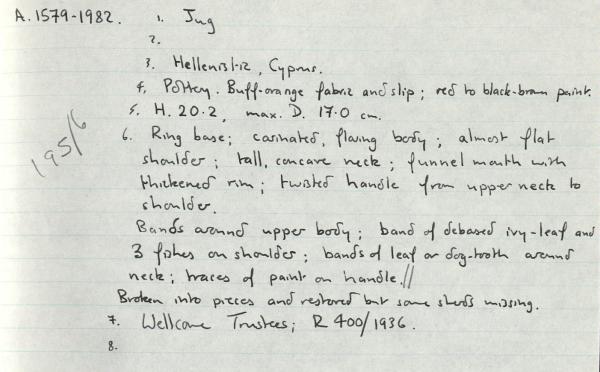 A.1579-1982. 1. Jug
2.
3. Hellenistic, Cyprus.
4. Pottery. Buff-orange fabric and slip; red to black-brown paint.
5. H. 20.2, max. D. 17.0 cm.
195/6
6. Ring base; carinated, flaring body; almost flat
shoulder; tall, concave neck; funnel mouth with
thickened rim; twisted handle from upper neck to
shoulder.
Bands around upper body; band of debased ivy-leaf and
3 fishes on shoulder; bands of leaf or dog-tooth around
neck; traces of paint on handle.//
Broken into pieces and restored but some sherds missing.
7. Wellcome Trustees; R 400/1936.
8.